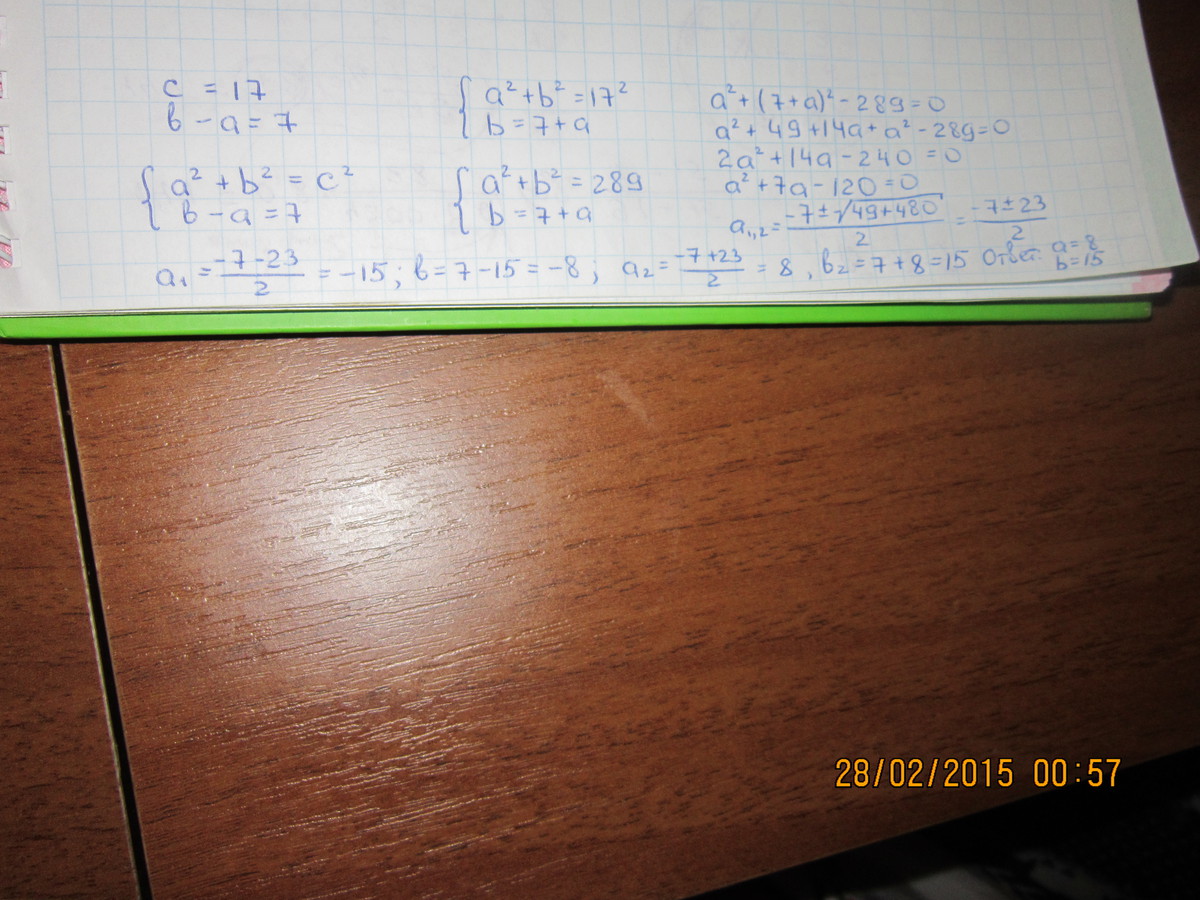 c = 17
в - a = 7
{ a² + b² = c²
в - a = 7
{ a² + b² = 17²
b = 7 + a
{ a² + b² = 289
b = 7 + a
a² + (7 + a)² - 289 = 0
a² + 49 + 14a + a² - 289 = 0
2a² + 14a - 240 = 0
a² + 7a - 120 = 0
a₁,₂ = (-7 ± √49 + 480)/2 = (-7 ± 23)/2
a₁ = (-7 - 23)/2 = -15; в = 7 - 15 = -8; a₂ = (-7 + 23)/2 = 8, в₂ = 7 + 8 = 15 Ответ: a = 8
b = 15
28/02/2015 00:57